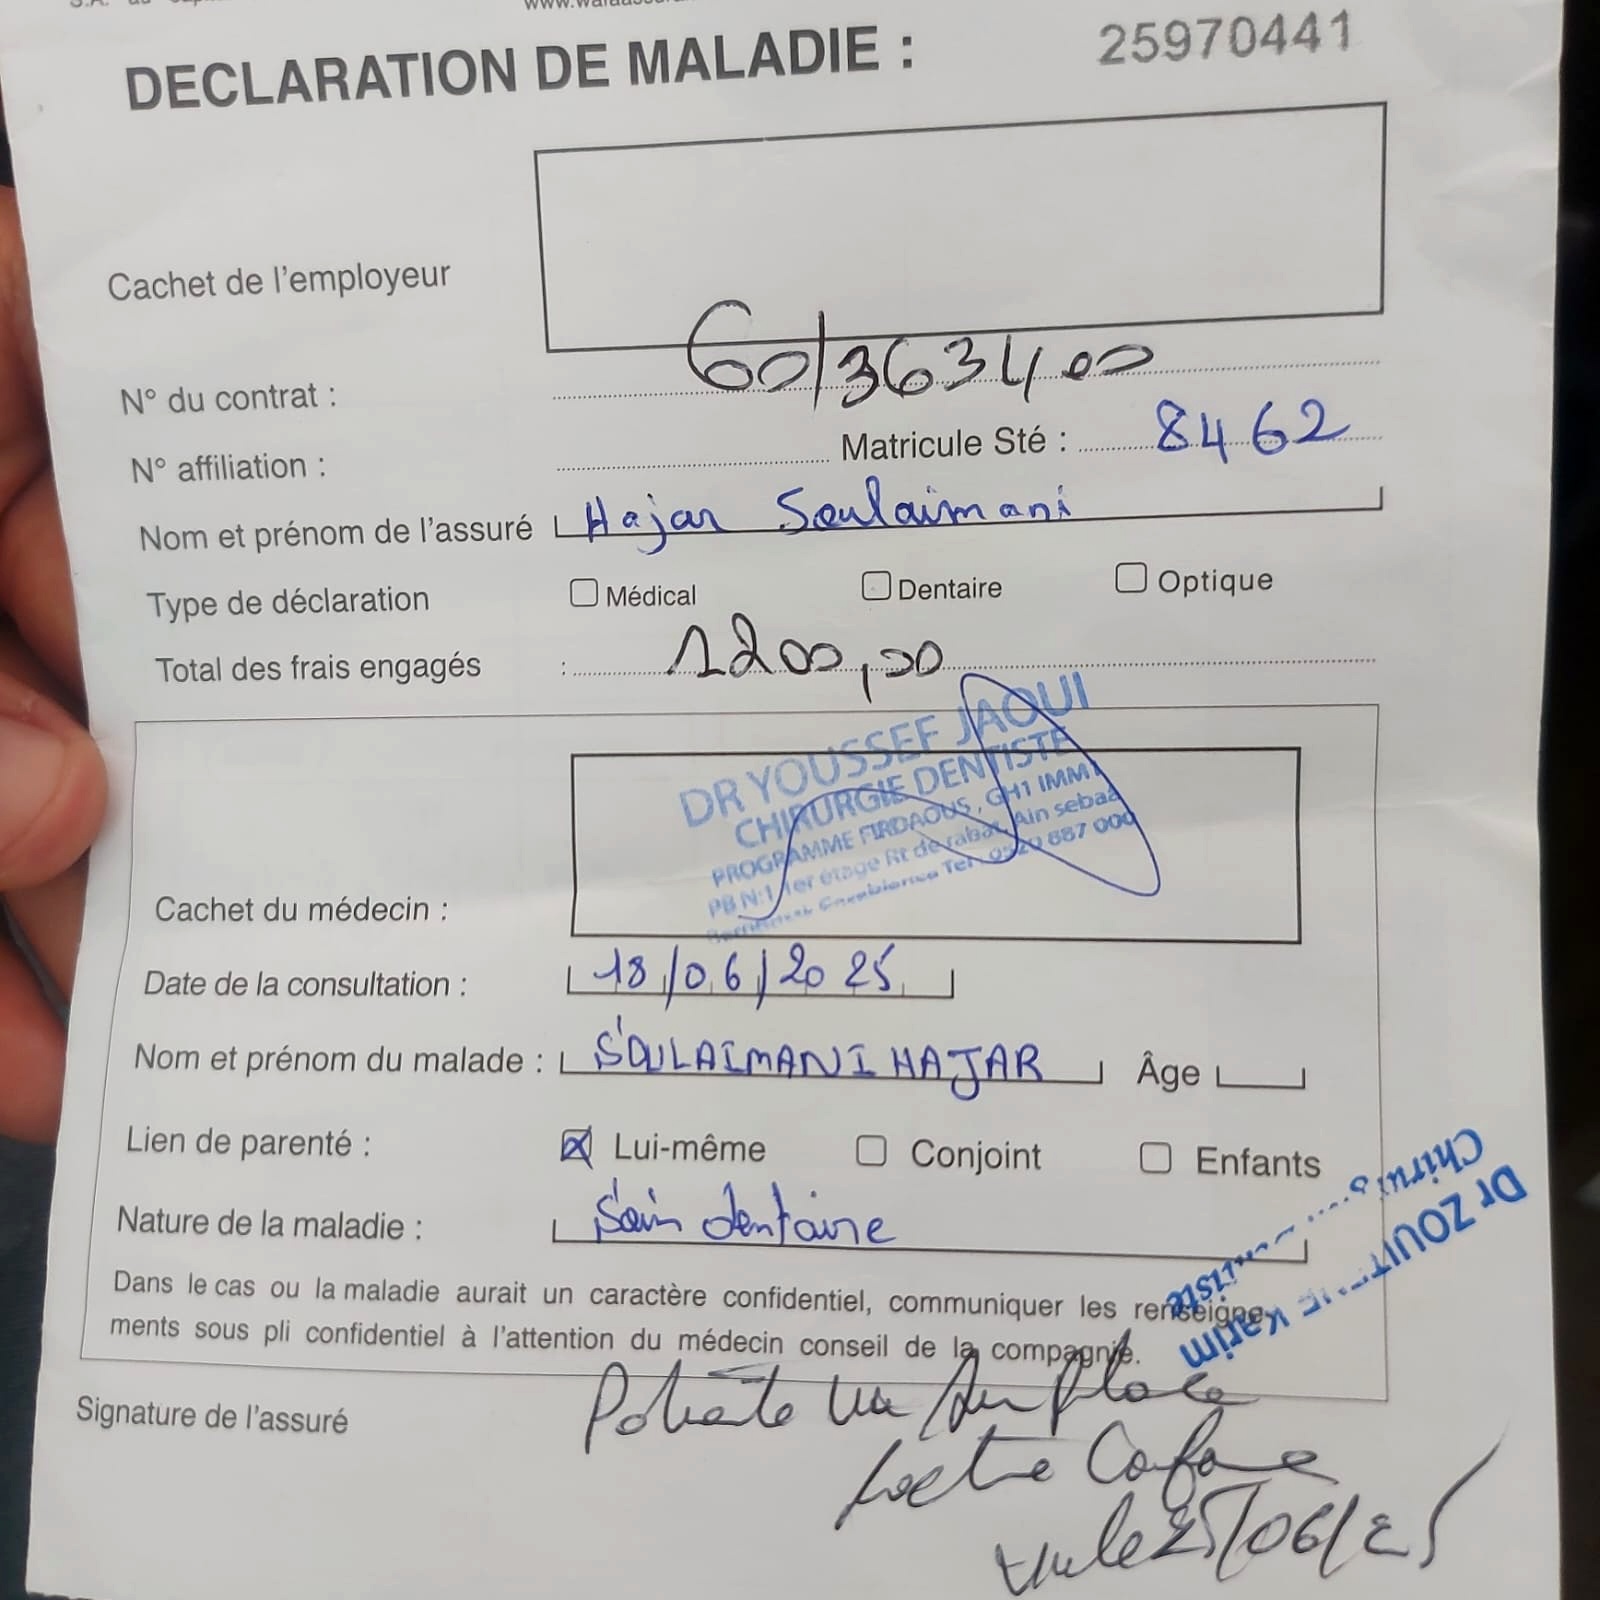 DECLARATION DE MALADIE : 25970441
Cachet de l'employeur
N° du contrat : 60/363400
N° affiliation : Matricule Sté : 8462
Nom et prénom de l'assuré Hajar Soulaimani
Type de déclaration Médical Dentaire Optique
Total des frais engagés : 1200,00
DR YOUSSEF JAOUI
CHIRURGIE DENTISTE
PROGRAMME FIRDAOUS, GH1 IMM1
PB N:1 1er étage Rt de rabat Ain sebaa
Casablanca Tel: 0520 887 000
Cachet du médecin :
Date de la consultation : 18/06/2025
Nom et prénom du malade : SOULAIMANI HAJAR Âge
Lien de parenté : Lui-même Conjoint Enfants
Nature de la maladie : Soin dentaire
Dans le cas ou la maladie aurait un caractère confidentiel, communiquer les renseigne-
ments sous pli confidentiel à l'attention du médecin conseil de la compagnie.
Dr Karim
Signature de l'assuré
25/06/25